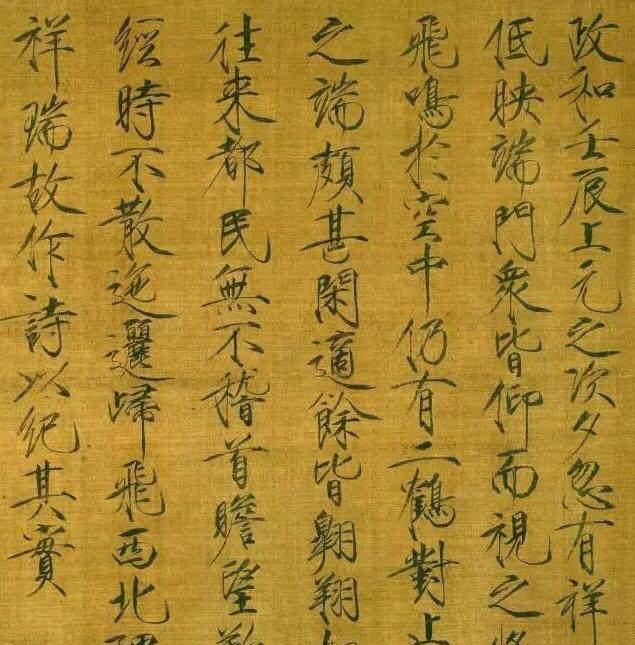 政和壬辰上元之次夕忽有祥
低映端門衆皆仰而視之
飛鳴於空中仍有二鶴對止
之端頗甚閑適餘皆翱翔
往來都民無不稽首瞻望
經時不散迤邐歸飛西北
祥瑞故作詩以紀其實